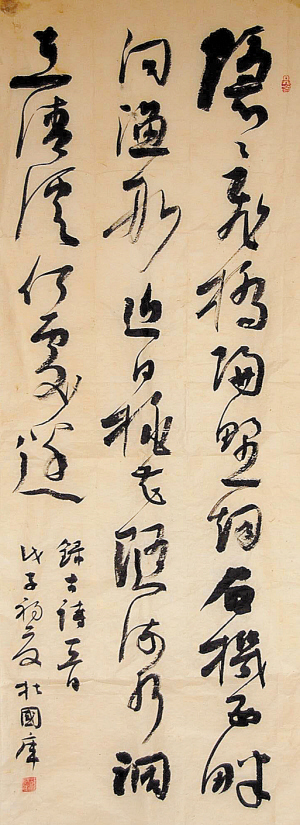 隱〻飛橋隔野烟石機西畔
问漁船日桃花隨流水洞
在清溪何處邊
錄古詩一首
戊子初夏杜國